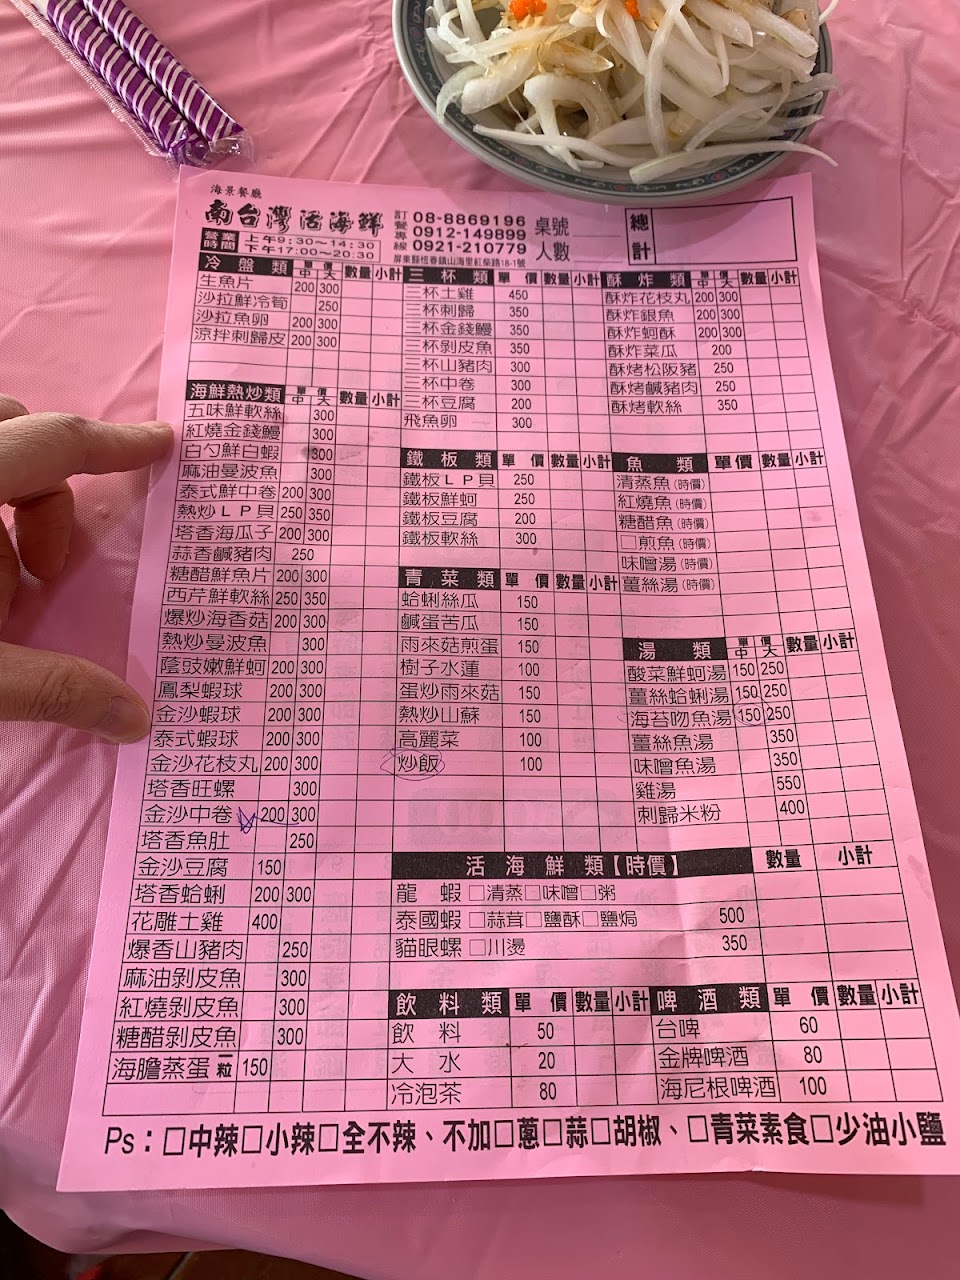 海景餐廳
南台灣活海鮮
訂餐專線 08-8869196
0912-149899
0921-210779
屏東縣恆春鎮山海里紅柴路18-1號
營業時間 上午9:30~14:30
下午17:00~20:30
桌號
人數
總計
冷盤類 單價 中 大 數量 小計
生魚片 200 300
沙拉鮮冷筍 250
沙拉魚卵 200 300
涼拌刺歸皮 200 300
海鮮熱炒類 單價 中 大 數量 小計
五味鮮軟絲 300
紅燒金錢鰻 300
白勺鮮白蝦 300
麻油曼波魚 300
泰式鮮中卷 200 300
熱炒LP貝 250 350
塔香海瓜子 200 300
蒜香鹹豬肉 250
糖醋鮮魚片 200 300
西芹鮮軟絲 250 350
爆炒海香菇 200 300
熱炒曼波魚 300
蔭豉嫩鮮蚵 200 300
鳳梨蝦球 200 300
金沙蝦球 200 300
泰式蝦球 200 300
金沙花枝丸 200 300
塔香旺螺 300
金沙中卷 200 300
塔香魚肚 250
金沙豆腐 150
塔香蛤蜊 200 300
花雕土雞 400
爆香山豬肉 250
麻油剝皮魚 300
紅燒剝皮魚 300
糖醋剝皮魚 300
海膽蒸蛋 一粒 150
三杯類 單價 數量 小計
三杯土雞 450
三杯刺歸 350
三杯金錢鰻 350
三杯剝皮魚 350
三杯山豬肉 300
三杯中卷 300
三杯豆腐 200
飛魚卵 300
鐵板類 單價 數量 小計
鐵板LP貝 250
鐵板鮮蚵 250
鐵板豆腐 200
鐵板軟絲 300
青菜類 單價 數量 小計
蛤蜊絲瓜 150
鹹蛋苦瓜 150
雨來菇煎蛋 150
樹子水蓮 100
蛋炒雨來菇 150
熱炒山蘇 150
高麗菜 100
炒飯 100
酥炸類 單價 中 大 數量 小計
酥炸花枝丸 200 300
酥炸銀魚 200 300
酥炸蚵酥 200 300
酥炸菜瓜 200
酥烤松阪豬 250
酥烤鹹豬肉 250
酥烤軟絲 350
魚類 單價 數量 小計
清蒸魚(時價)
紅燒魚(時價)
糖醋魚(時價)
□煎魚(時價)
味噌湯(時價)
薑絲湯(時價)
湯類 單價 中 大 數量 小計
酸菜鮮蚵湯 150 250
薑絲蛤蜊湯 150 250
海苔吻魚湯 150 250
薑絲魚湯 350
味噌魚湯 350
雞湯 550
刺歸米粉 400
活海鮮類【時價】 數量 小計
龍蝦 □清蒸□味噌□粥
泰國蝦 □蒜茸□鹽酥□鹽焗 500
貓眼螺 □川燙 350
飲料類 單價 數量 小計
飲料 50
大水 20
冷泡茶 80
啤酒類 單價 數量 小計
台啤 60
金牌啤酒 80
海尼根啤酒 100
Ps：□中辣□小辣□全不辣、不加□蔥□蒜□胡椒、□青菜素食□少油小鹽